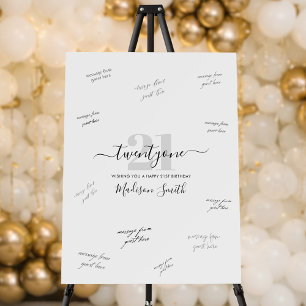 message from
guest here
message from
guest here
message from
guest here
message from
guest here
message from
guest here
21
twentyone
WISHING YOU A HAPPY 21ST BIRTHDAY
Madison Smith
guest here
message from
guest here
message from
guest here
message from
guest here
message from
guest here